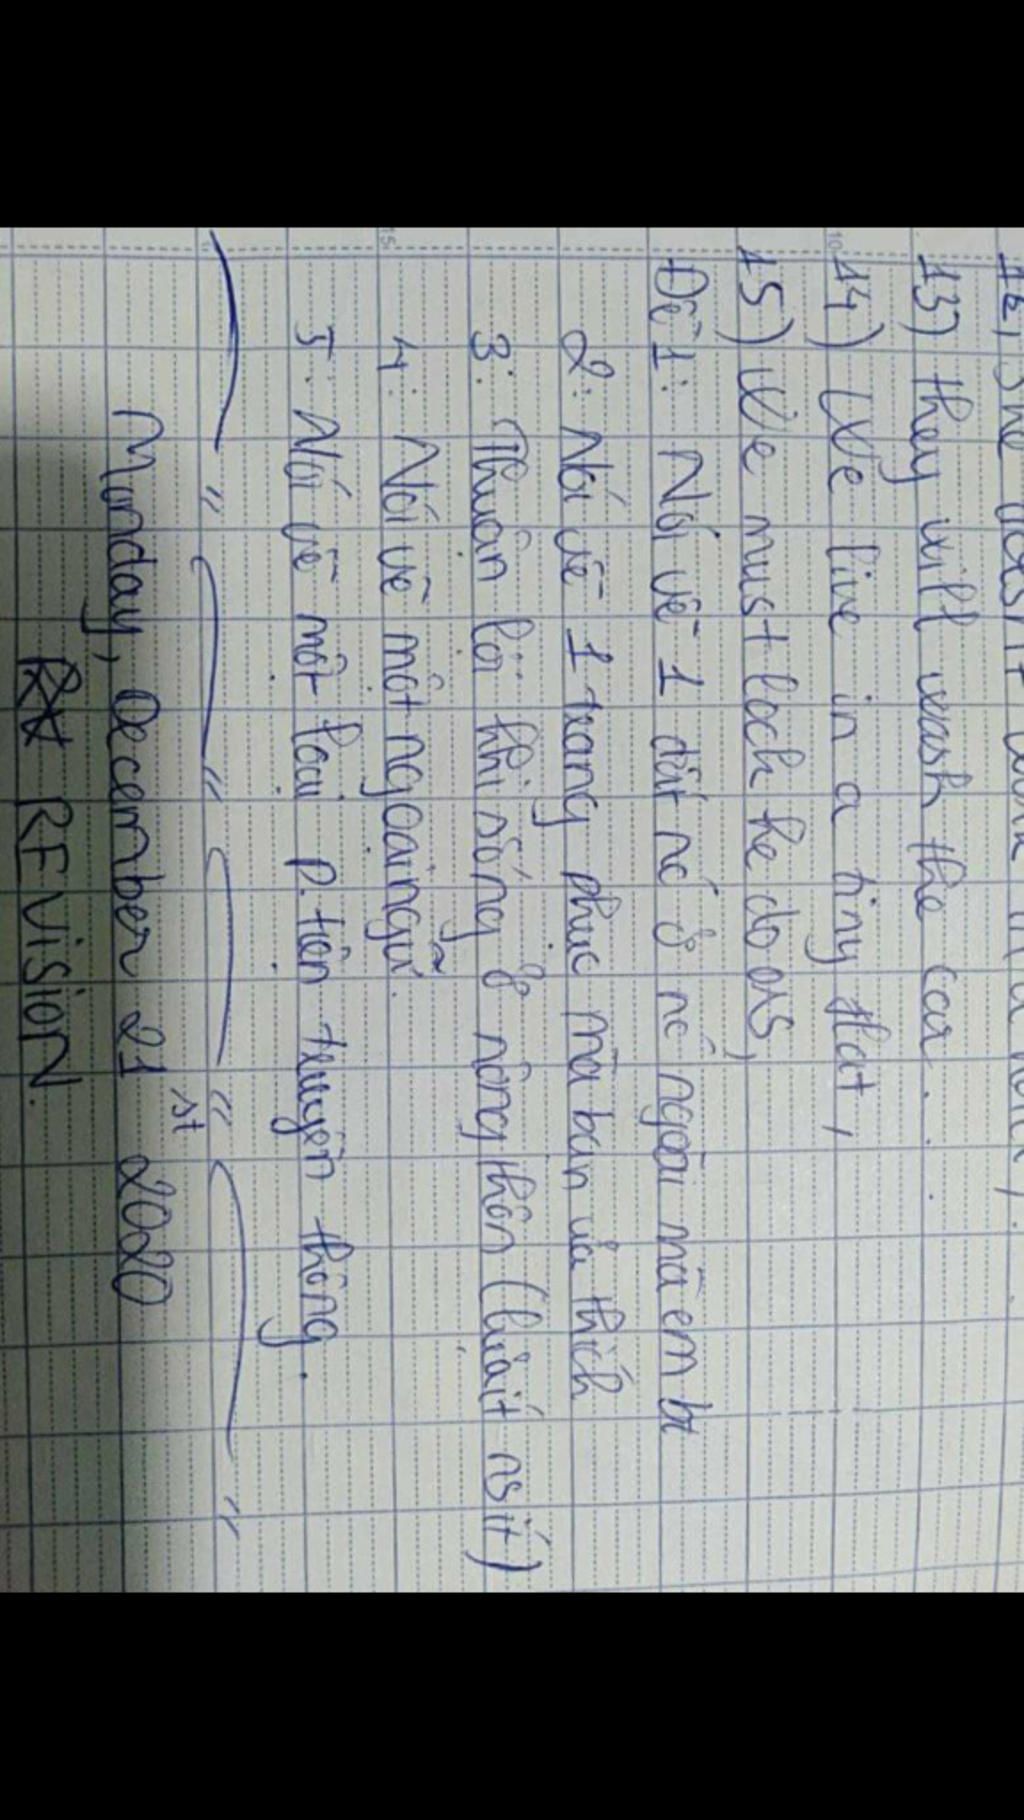 12) She doesn't
13) they will wash the car.
14) We live in a tiny flat,
15) We must lock he doors,
Đề 1: Nói về 1 đất nc ở nc ngoài mà em bt
2: Nói về 1 trang phục mà bạn ưa thích
3: Thuận lợi khi sống ở nông thôn (thuật nsit)
4: Nói về một ngoại ngữ.
5: Nói về một loại p.tiện truyền thông.
Monday, December 21st 2020
REVISION.